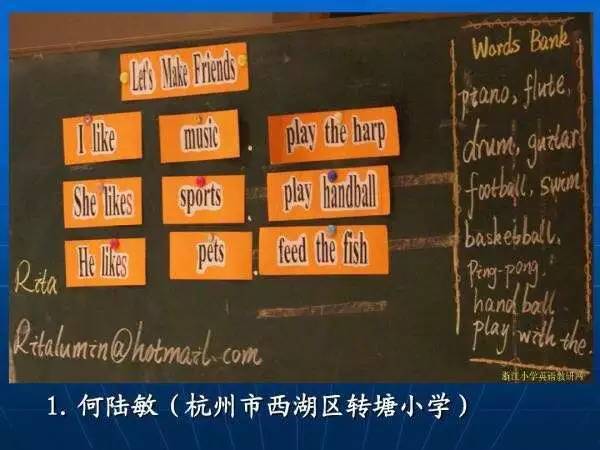 Let's Make Friends
I like
music
play the harp
She likes
sports
play handball
He likes
pets
feed the fish
Rita
Ritalumin@hotmail.com
Words Bank
piano, flute,
drum, guitar
football, swim
basketball,
Ping-pong,
handball
play with the
浙江小学英语教研网
1. 何陆敏（杭州市西湖区转塘小学）